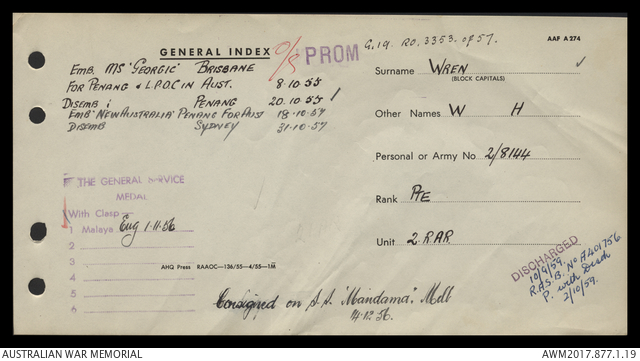 GENERAL INDEX O/S PROM G.19. RO. 3353. of 57. AAF A 274
EMB. MS "GEORGIC" BRISBANE
FOR PENANG & L.P.O.C IN AUST. 8·10·55
DISEMB: PENANG 20·10·55
EMB "NEW AUSTRALIA" PENANG FOR AUST 18·10·57
DISEMB SYDNEY 31·10·57
Surname WREN
(BLOCK CAPITALS)
Other Names W H
Personal or Army No. 2/8144
Rank PTE
Unit 2 RAR.
THE GENERAL SERVICE
MEDAL
With Clasp
1 Malaya Eng 1·11·56
2
3
4
5
6
AHQ Press RAAOC—136/55—4/55—1M
Consigned on S.S. "Mandama". Melb
14·12·56.
DISCHARGED
10/9/59.
R.A.S.B. No A401756
P. with
2/10/59.
AUSTRALIAN WAR MEMORIAL AWM2017.877.1.19